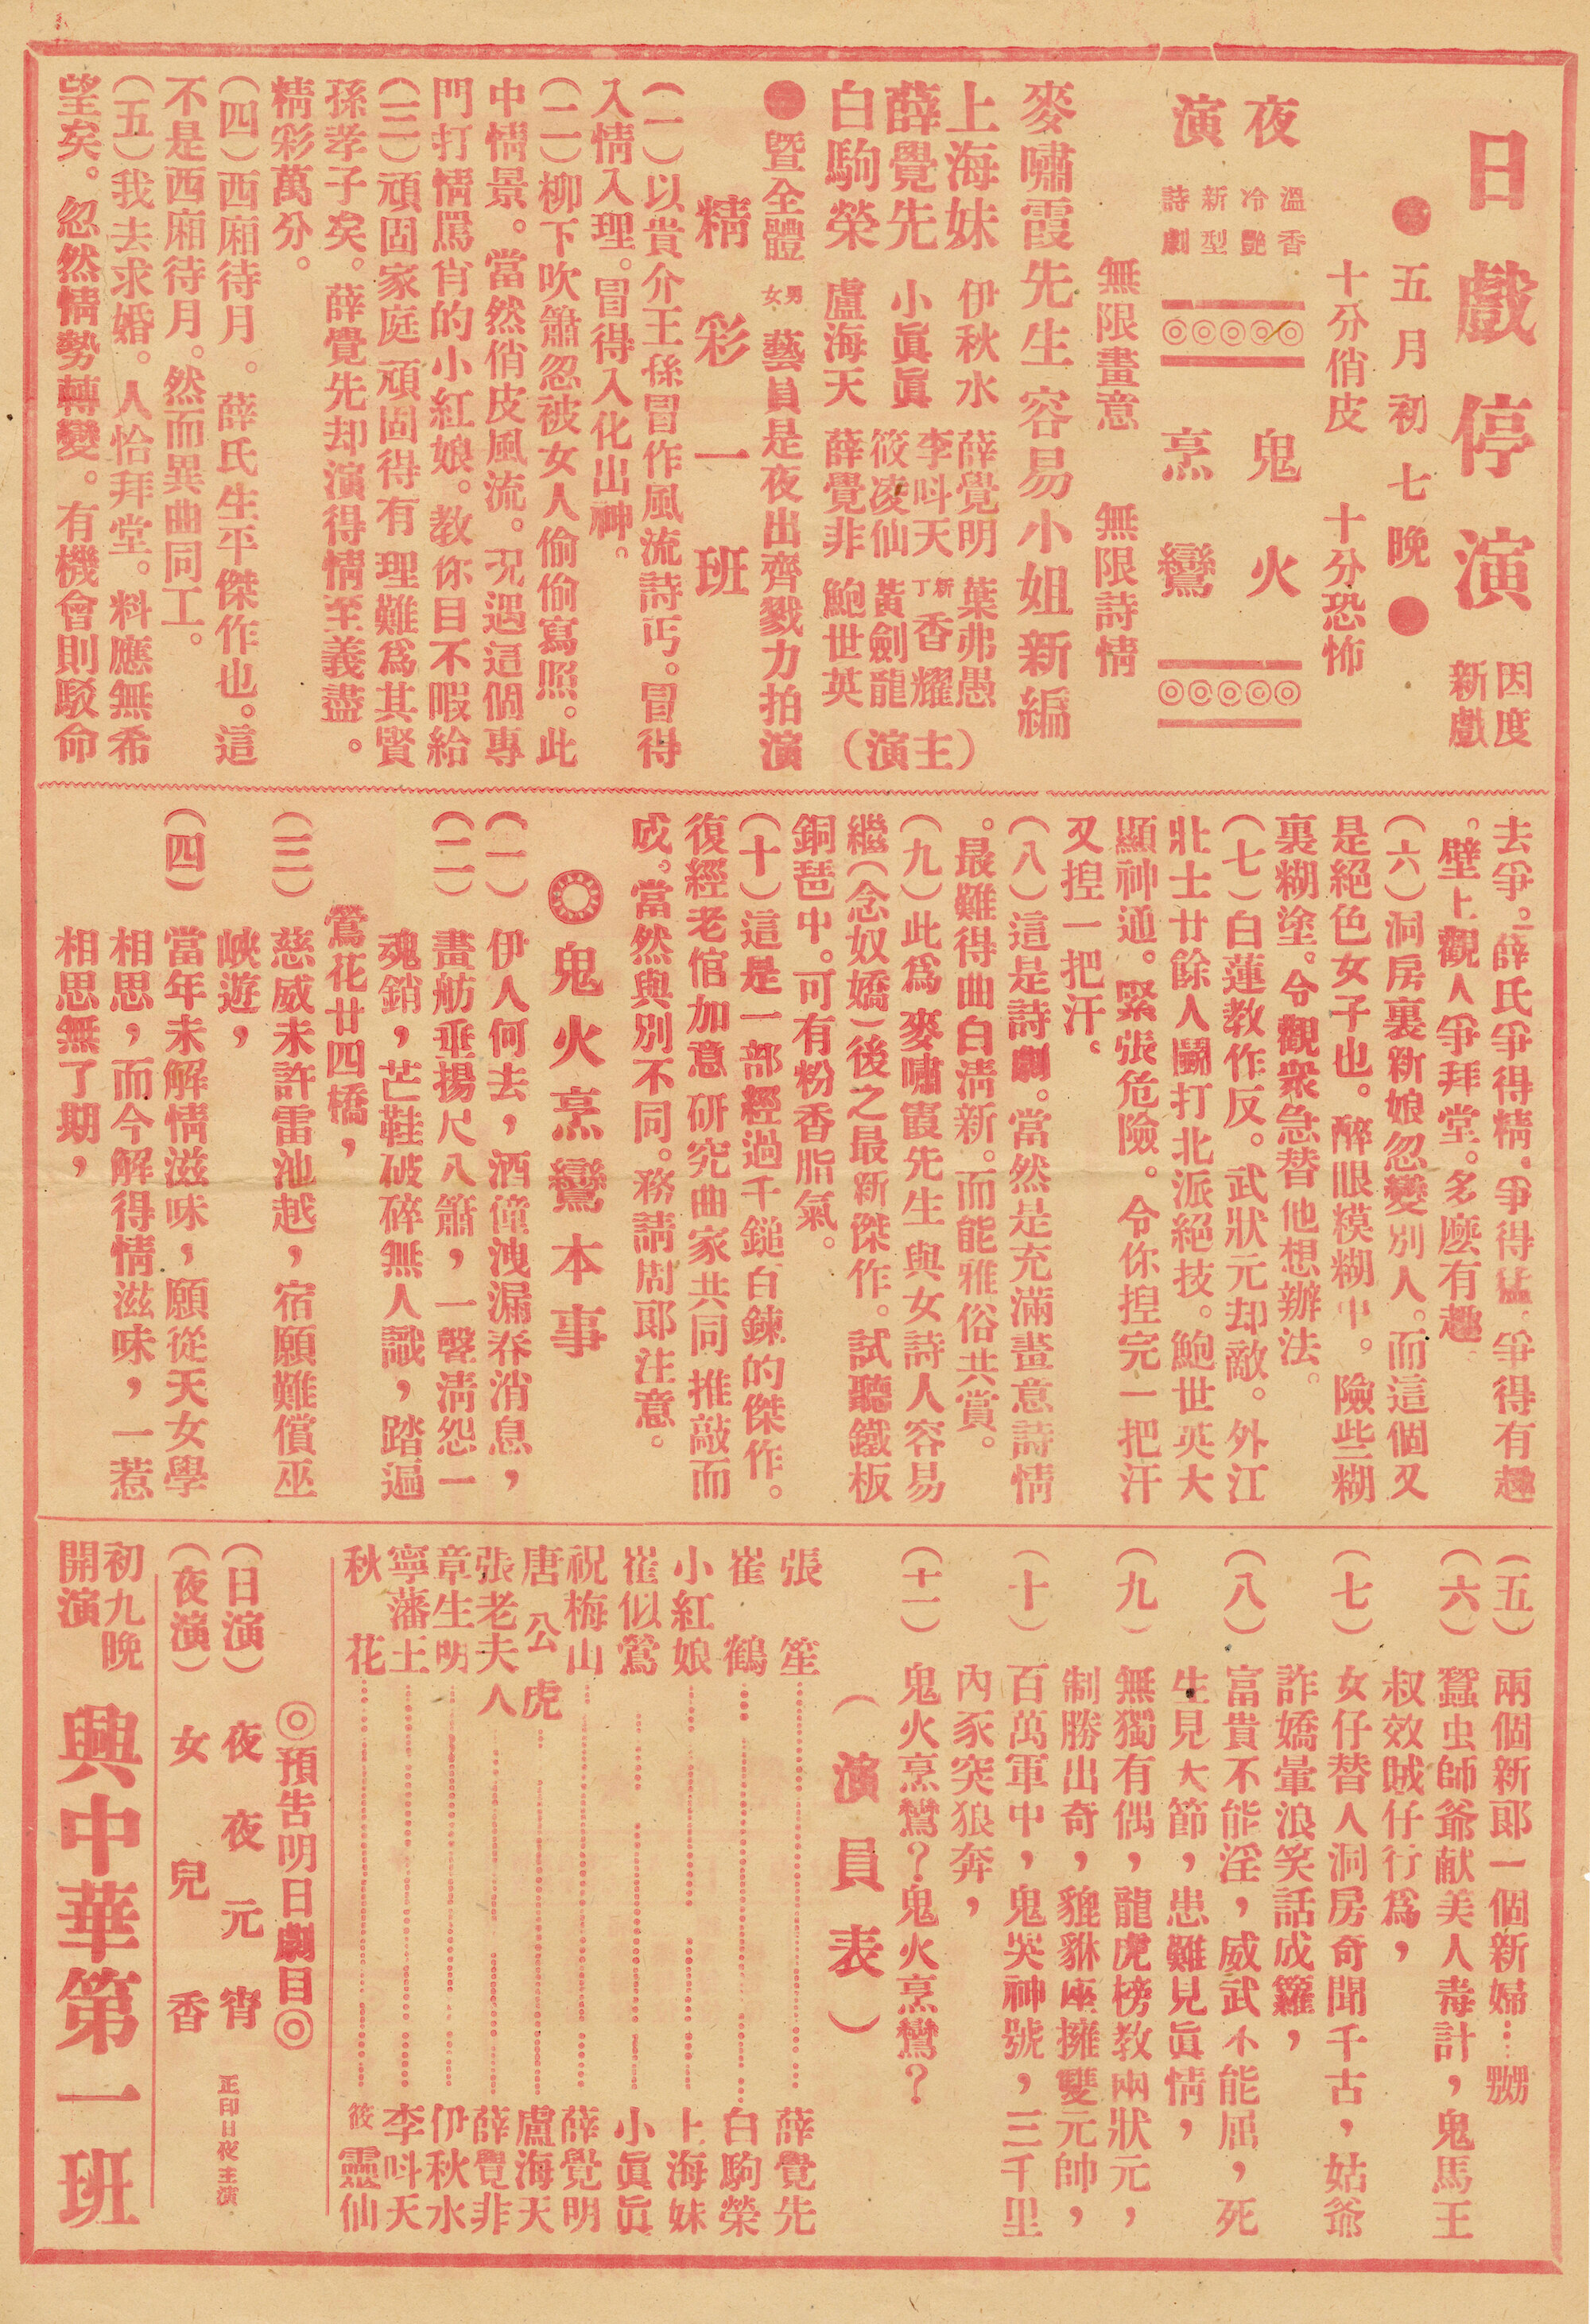 日戲停演
因度
新戲
●五月初七晚●
十分俏皮 十分恐怖
夜 鬼火
演 烹鸞
溫香
冷艷
新型
詩劇
無限畫意 無限詩情
麥嘯霞先生容易小姐新編
上海妹 伊秋水 薛覺明 葉弗愚
薛覺先 小眞眞 李叫天 新丁香耀
筱凌仙 黃劍龍
白駒榮 盧海天 薛覺非 鮑世英
(主演)
●曁全體男女藝員是夜出齊戮力拍演
精彩一班
(一)以貴介王孫冒作風流詩丐。冒得
入情入理。冒得入化出神。
(二)柳下吹簫忽被女人偷偷寫照。此
中情景。當然俏皮風流。况遇這個專
門打情罵肖的小紅娘。教你目不暇給
(三)頑固家庭頑固得有理難爲其賢
孫孝子矣。薛覺先却演得情至義盡。
精彩萬分。
(四)西廂待月。薛氏生平傑作也。這
不是西廂待月。然而異曲同工。
(五)我去求婚。人恰拜堂。料應無希
望矣。忽然情勢轉變。有機會則駁命
去爭。薛氏爭得精。爭得猛。爭得有趣
。壁上觀人爭拜堂。多麽有趣
(六)洞房裏新娘忽變別人。而這個又
是絕色女子也。醉眼糢糊中。險些糊
裏糊塗。令觀衆急替他想辦法。
(七)白蓮教作反。武狀元却敵。外江
壯士廿餘人鬭打北派絕技。鮑世英大
顯神通。緊張危險。令你揑完一把汗
又揑一把汗。
(八)這是詩劇。當然是充滿畫意詩情
。最難得曲白淸新。而能雅俗共賞。
(九)此爲麥嘯霞先生與女詩人容易
繼(念奴嬌)後之最新傑作。試聽鐵板
銅琶中。可有粉香脂氣。
(十)這是一部經過千鎚百鍊的傑作。
復經老倌加意研究曲家共同推敲而
成。當然與別不同。務請周郎注意。
鬼火烹鸞本事
(一)伊人何去,酒僮洩漏春消息,
(二)畫舫垂揚尺八簫,一聲淸怨一
魂銷,芒鞋破碎無人識,踏遍
鶯花廿四橋,
(三)慈威未許雷池越,宿願難償巫
峽遊,
(四)當年未解情滋味,願從天女學
相思,而今解得情滋味,一惹
相思無了期,
(五)兩個新郎一個新婦…嬲
(六)蠶虫師爺獻美人毒計,鬼馬王
叔效賊仔行爲,
(七)女仔替人洞房奇聞千古,姑爺
詐嬌暈浪笑話成籮,
(八)富貴不能淫,威武不能屈,死
生見大節,患難見眞情,
(九)無獨有偶,龍虎榜教兩狀元,
制勝出奇,貔貅座擁雙元帥,
(十)百萬軍中,鬼哭神號,三千里
內豕突狼奔,
(十一)鬼火烹鸞?鬼火烹鸞?
(演員表)
張笙……薛覺先
崔鶴……白駒榮
小紅娘……上海妹
崔似鶯……小眞眞
祝梅山……薛覺明
唐公虎……盧海天
張老夫人……薛覺非
章生明……伊秋水
寧藩王……李叫天
秋花……筱靈仙
◎預告明日劇目◎
(日演)夜夜元宵 正印日夜主演
(夜演)女兒香
初九晚
開演
興中華第一班